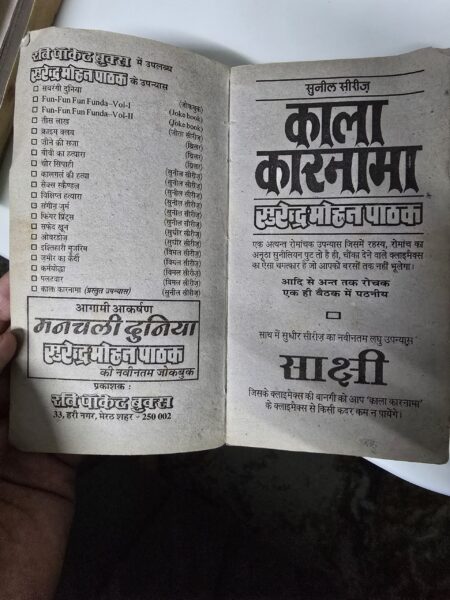 रवि पॉकेट बुक्स में उपलब्ध
सुरेन्द्र मोहन पाठक के उपन्यास
□ सतरंगी दुनिया (जोकबुक)
□ Fun-Fun Fun Funda-Vol-I (Joke book)
□ Fun-Fun Fun Funda-Vol-II (Joke book)
□ तीस लाख (जीता सीरीज़)
□ क्राइम क्लब (थ्रिलर)
□ जीने की सजा (थ्रिलर)
□ बीवी का हत्यारा (थ्रिलर)
□ चोर सिपाही (सुनील सीरीज़)
□ कालगर्ल की हत्या (सुनील सीरीज़)
□ सैक्स स्कैण्डल (सुनील सीरीज़)
□ विक्षिप्त हत्यारा (सुनील सीरीज़)
□ संगीन जुर्म (सुनील सीरीज़)
□ फिंगर प्रिंट्स (सुनील सीरीज़)
□ सफेद खून (सुधीर सीरीज़)
□ ओवरडोज़ (सुधीर सीरीज़)
□ इश्तिहारी मुजरिम (विमल सीरीज़)
□ जमीर का कैदी (विमल सीरीज़)
□ कर्मयोद्धा (विमल सीरीज़)
□ पलटवार (विमल सीरीज़)
□ काला कारनामा (प्रस्तुत उपन्यास) (सुनील सीरीज़)
आगामी आकर्षण
मनचली दुनिया
सुरेन्द्र मोहन पाठक
की नवीनतम जोकबुक
प्रकाशक :
रवि पॉकेट बुक्स
33, हरी नगर, मेरठ शहर - 250 002
सुनील सीरीज़
काला
कारनामा
सुरेन्द्र मोहन पाठक
एक अत्यन्त रोमांचक उपन्यास जिसमें रहस्य, रोमांच का
अनूठा सुनीलियन पुट तो है ही, चौंका देने वाले क्लाइमैक्स
का ऐसा चमत्कार है जो आपको बरसों तक नहीं भूलेगा।
आदि से अन्त तक रोचक
एक ही बैठक में पठनीय
साथ में सुधीर सीरीज़ का नवीनतम लघु उपन्यास
साक्षी
जिसके क्लाइमैक्स की बानगी को आप 'काला कारनामा'
के क्लाइमैक्स से किसी कदर कम न पायेंगे।